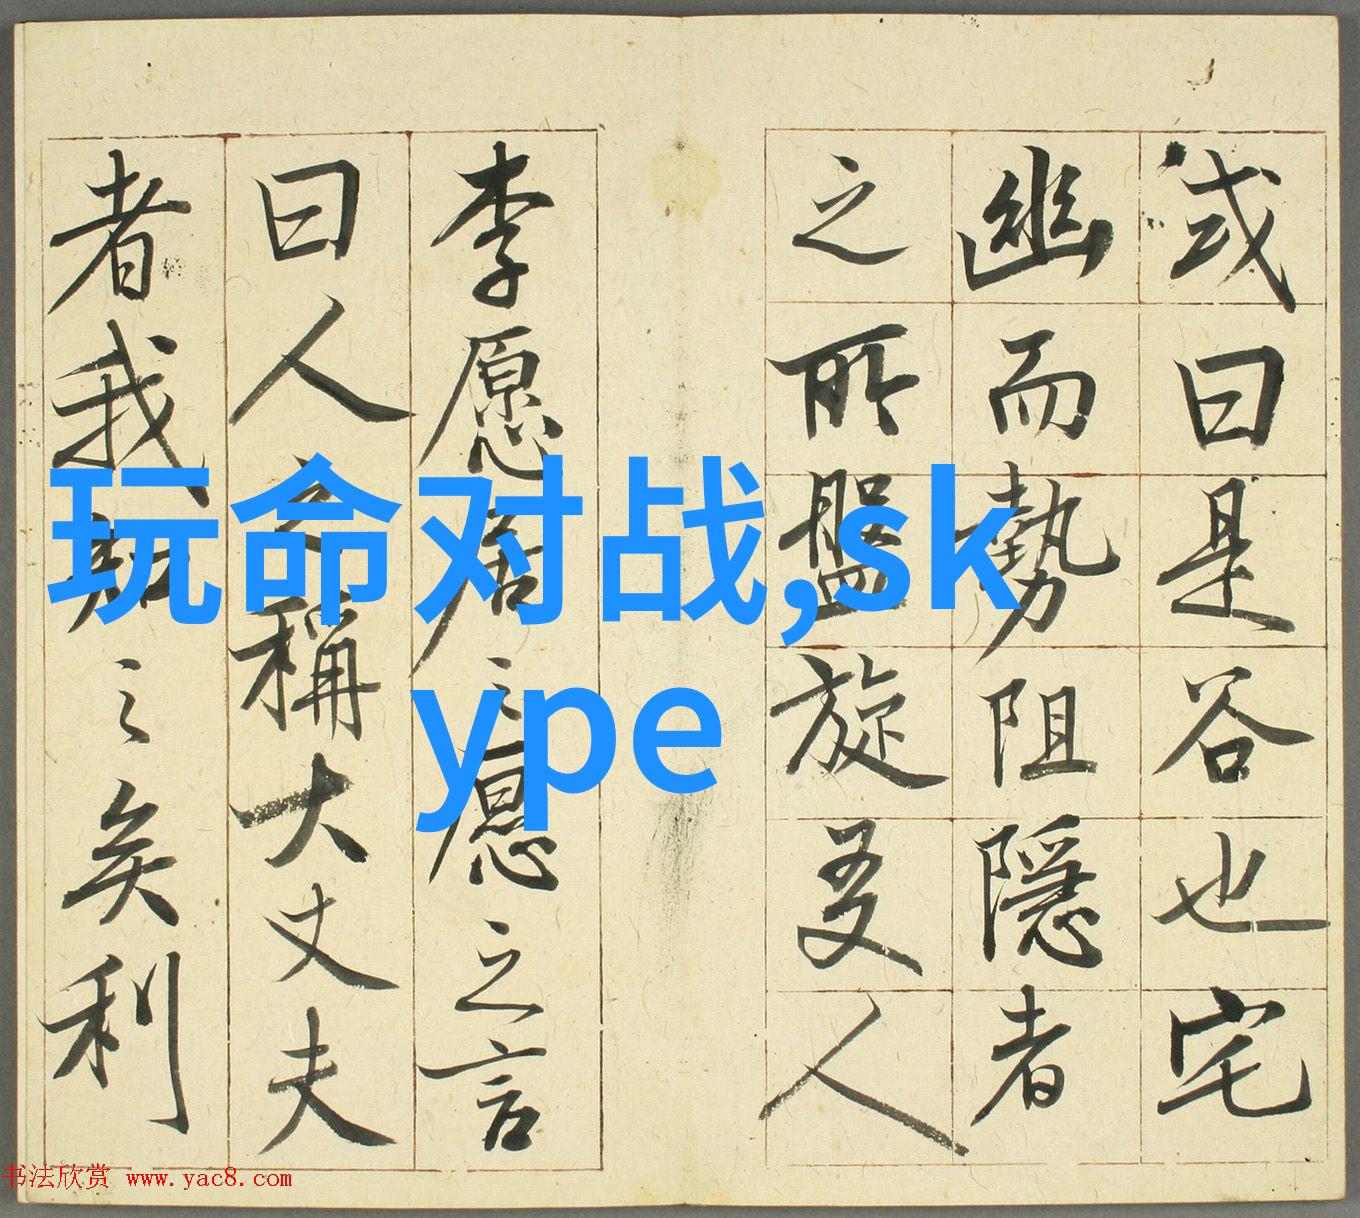 或曰是谷也宅
幽而勢阻隱者
之所盤旋友人
李愿居之愿之言
曰人之稱大丈夫
者我知之矣利
玩命对战,sk
ype
书法欣赏 www.yac8.com